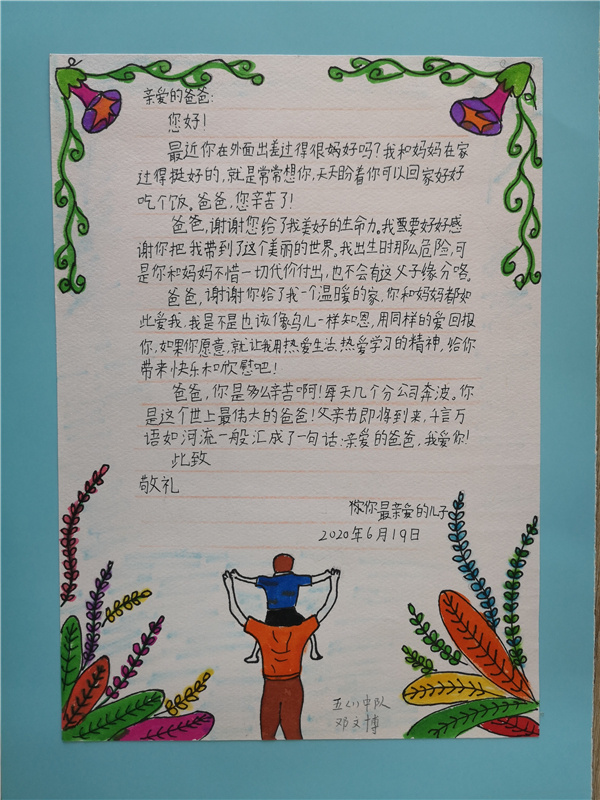 亲爱的爸爸:
您好!
最近你在外面出差过得很好吗?我和妈妈在家
过得挺好的,就是常常想你,天天盼着你可以回家好好
吃个饭。爸爸,您辛苦了!
爸爸,谢谢您给了我美好的生命力。我要好好感
谢你把我带到了这个美丽的世界。我出生时那么危险,可
是你和妈妈不惜一切代价付出,也不会有这父子缘分咯。
爸爸,谢谢你给了我一个温暖的家,你和妈妈都如
此爱我,我是不是也该像乌儿一样知恩,用同样的爱回报
你,如果你愿意,就让我用热爱生活、热爱学习的精神,给你
带来快乐和欣慰吧!
爸爸,你是多么辛苦啊!每天几个分公司奔波。你
是这个世上最伟大的爸爸!父亲节即将到来,千言万
语如河流一般汇成了一句话:亲爱的爸爸,我爱你!
此致
敬礼
你最亲爱的儿子
2020年6月19日
五(1)中队
邓文博